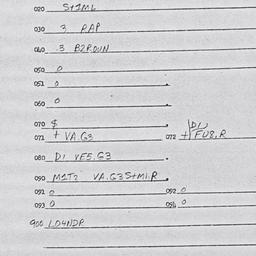 020 S+IML
030 3 RAP
040 3 B2ROUN
050 0
051 0
060 0
070 $
071 + VA.G3 072 +FU8.R
080 DI VF5.G3
090 M2T2 VA.G3S+MI.R
092 0 092 0
093 0 094 0
900 LO4NDR